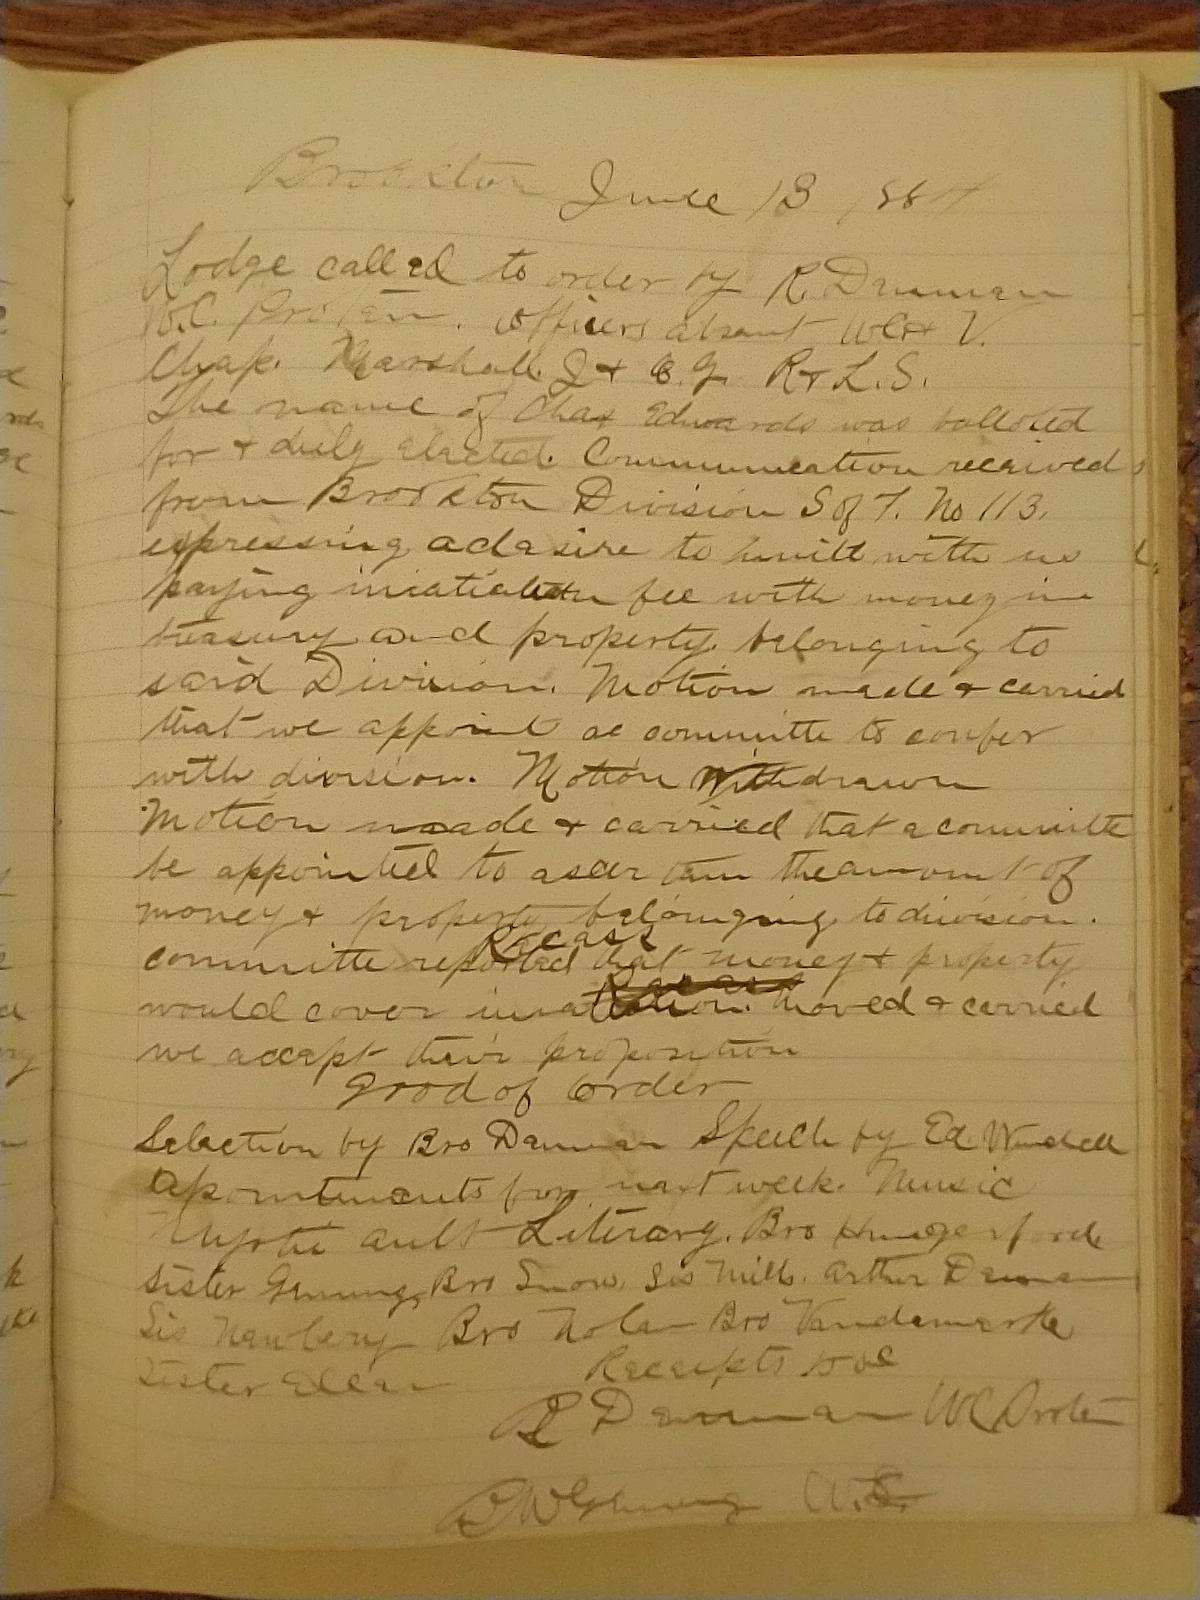 Brookton June 13 1884
Lodge called to order by R Denman
W.C. Protem. Officers absent WC & V.
Chap. Marshall. I & O.G. R & L.S.
The name of Chas Edwards was balloted
for & duly elected. Communication received
from Brookton Division S of T. No 113.
expressing a desire to unite with us
paying iniatiation fee with money in
treasury and property belonging to
said Division. Motion made & carried
that we appoint a committe to confer
with division. Motion Withdrawn
Motion made & carried that a committe
be appointed to ascertain the amount of
money & property belonging to division.
Recess
committe reported that money & property
Recess
would cover iniatiation. Moved & carried
we accept their proposition
Good of Order
Selection by Bro Denman Speech by Ed. Winchell
Apointments for next week. Music
Myrtie Ault Literary. Bro Hungerford
Sister Genung, Bro Snow. Sis Mills. Arthur Denman
Sis Newbery Bro Nolan Bro Vandemark
Sister Ellen Receipts
R Denman WC Protem
B W Genung W.S.